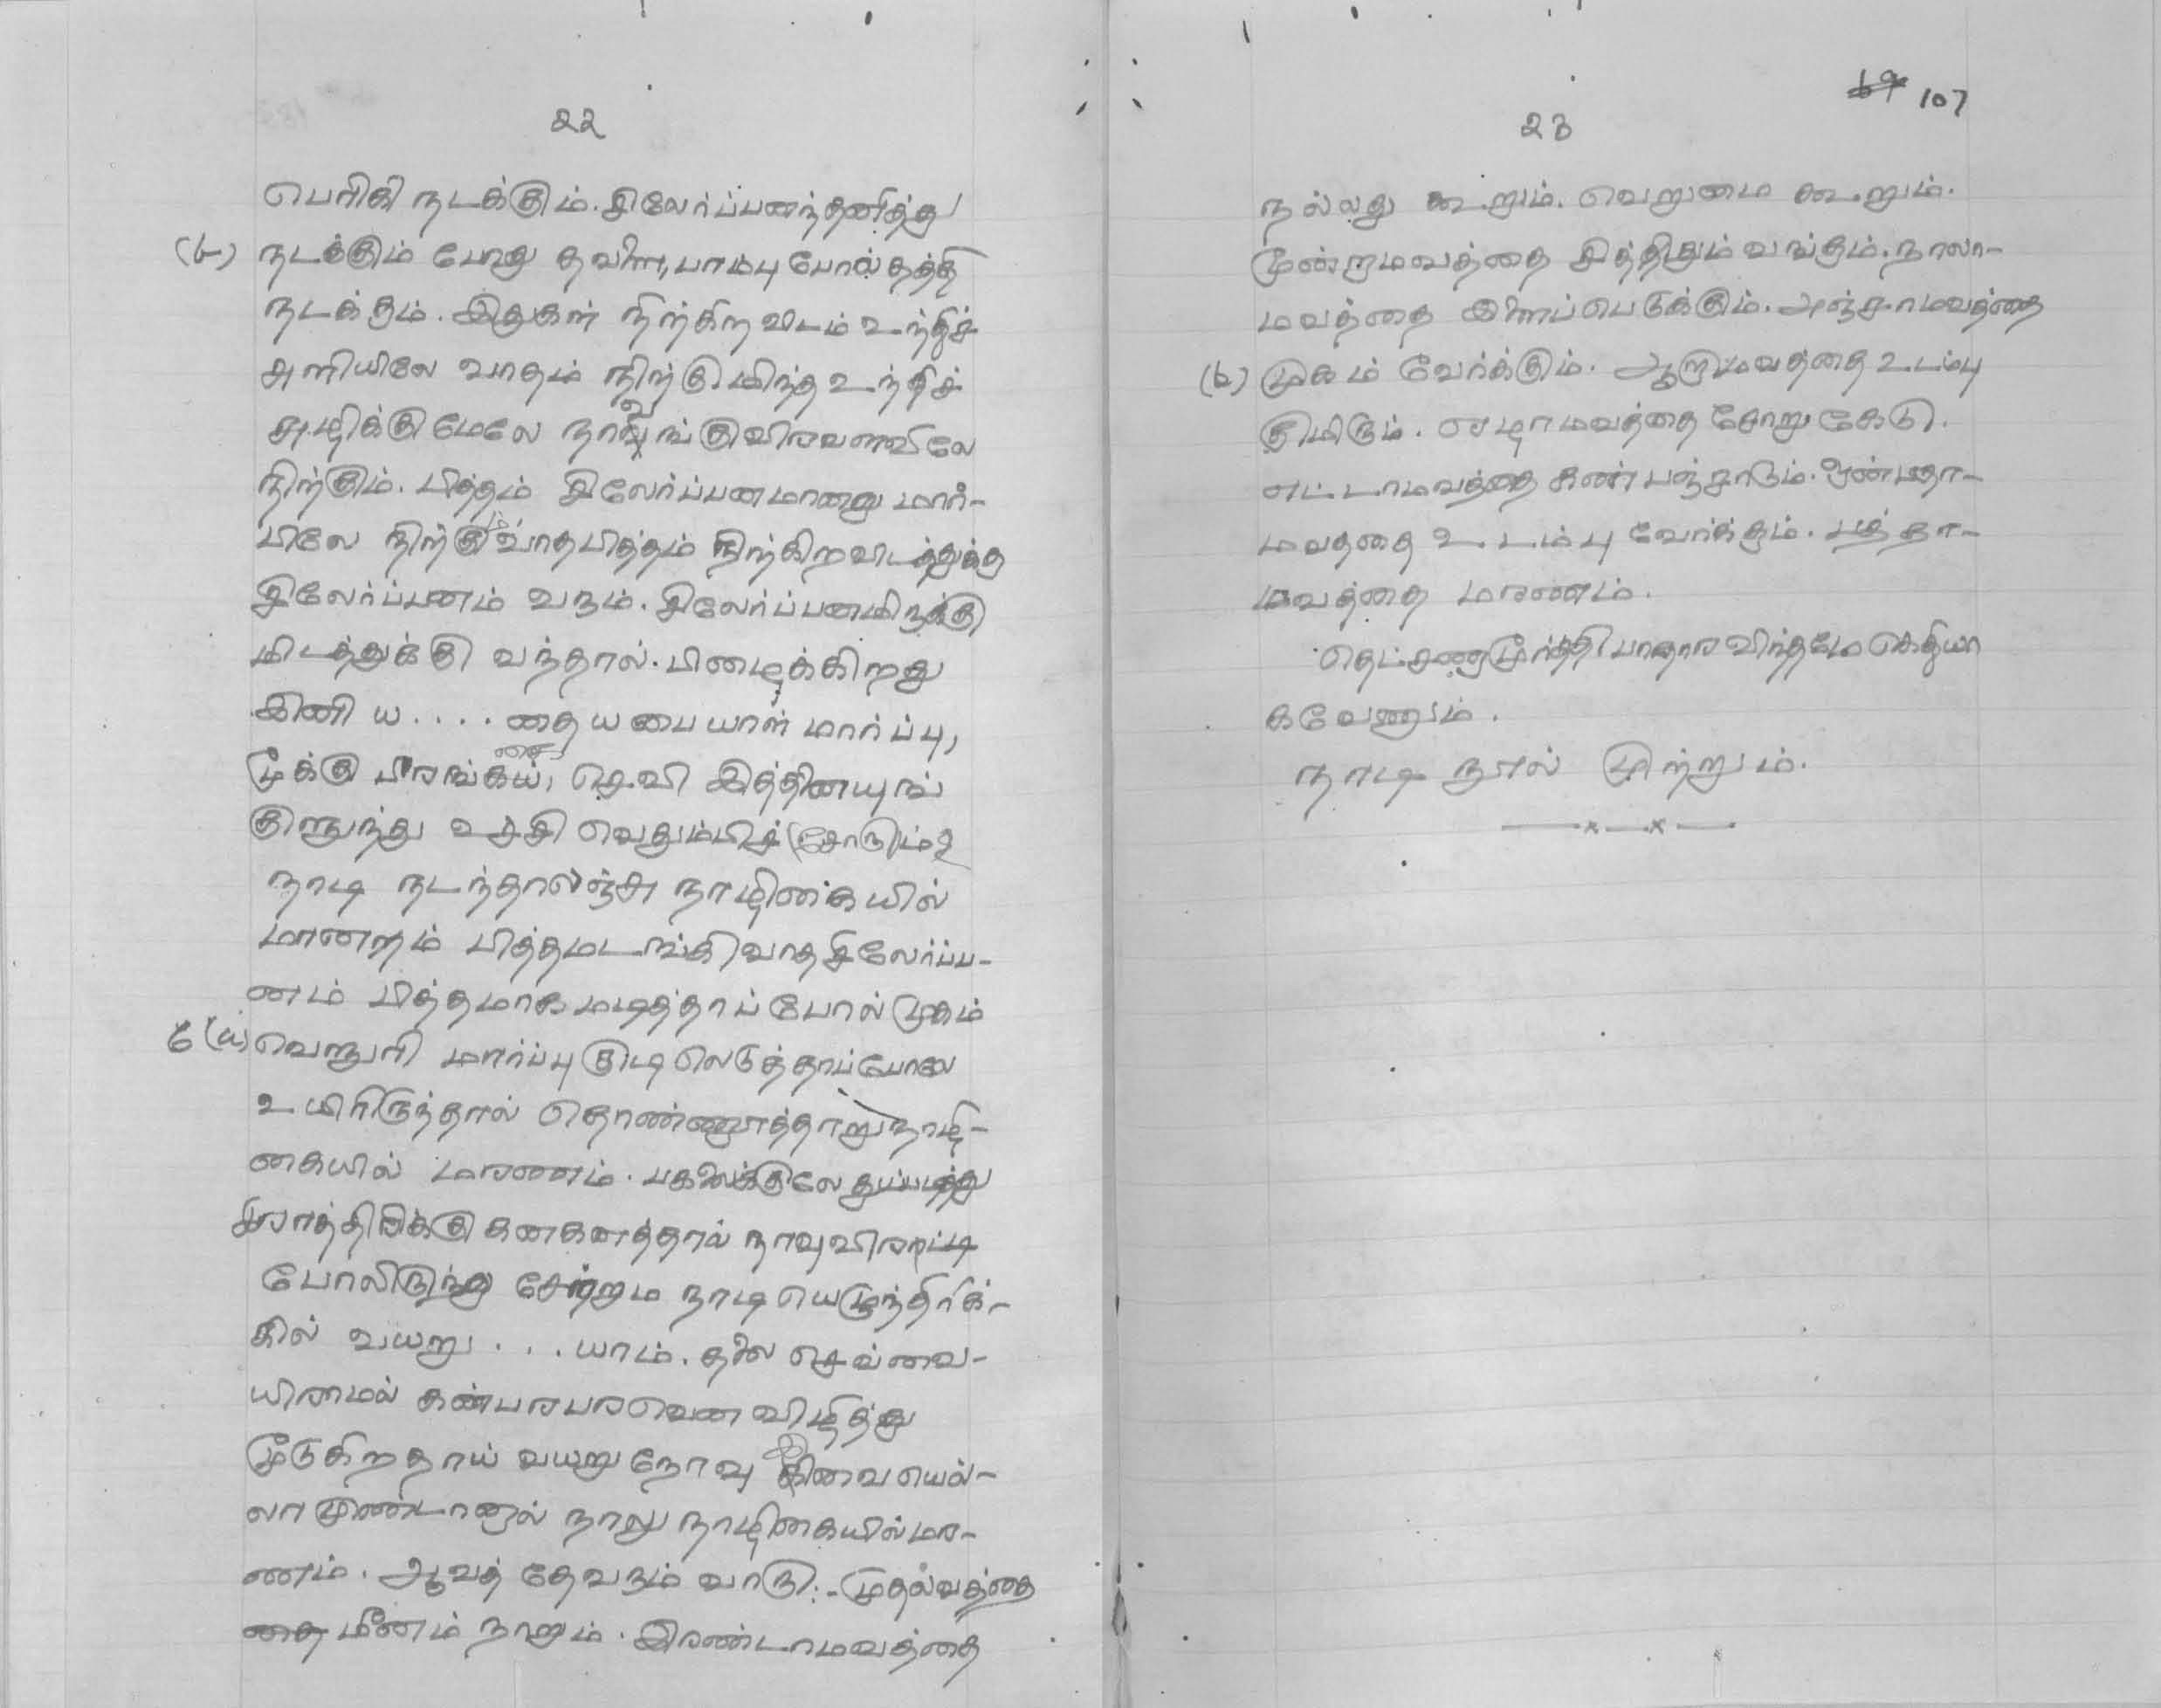 22
பெருகி நடக்கும். சிலேர்ப்பனந்தனித்து
(b) நடக்கும் போது தவளை, பாம்பு போல் தத்தி
நடக்கும். இதுகள் நிற்கிற விடம் உந்திச்
சுளியிலே வாதம் நிற்கு மிந்த உந்திச்
சுழிக்கு மேலே நாலங்குவிரலளவிலே
நிற்கும். பித்தம் சிலேர்ப்பனமானது மார்-
பிலே நிற்கும் வாதபித்தம் நிற்கிறவிடத்துக்கு
சிலேர்ப்பனம் வரும். சிலேர்ப்பனமிருக்கு
மிடத்துக்கு வந்தால். பிழைக்கிறது
இனி ய . . . . தை யபை யாள் மார்ப்பு,
மூக்கு புறங்கை, செவி இத்தினயுங்
குளுந்து உச்சி வெதும்பிச் (சோரு)ம்
நாடி நடந்தாலஞ்சு நாழிகையில்
மரணம் பித்தமடங்கி வாத சிலேர்ப்ப-
னம் பித்தமாக மடித்தாப் போல் முகம்
6 (a) வெளுரி மார்ப்பு குடி லெடுத்தாப்போலே
உயிரிருந்தால் தொண்ணூத்தாறு நாழி-
கையில் மரணம். பகலைக்குலே
ராத்திரிக்கு கணகணத்தால் நாவு விரட்டி
போலிருந்து சேற்றும நாடி யெழுந்திரிக்-
கில் வயறு . . . யாம். தலை செவ்வை-
யிராமல் கண்பரபரவென விழித்து
மூடுகிறதாய் வயறு நோவு இவை யெல்-
லா முண்டானால் நாலு நாழிகையில் மர-
ணம். ஆவத் தேவரும் வாரு:- முதல்வத்தை
மீனம் நாறும். இரண்டாமவத்தை
107
23
நல்லது கூறும். வெறுமை கூறும்.
மூன்றாமவத்தை சித்திரும் வங்கும். நாலா-
மவத்தை இளைப்பெடுக்கும். அஞ்சாமவத்தை
(b) முகம் வேர்க்கும். ஆறாமவத்தை உடம்பு
குமிரும். ஏழாமவத்தை சோறு கேடு.
எட்டாமவத்தை கண் பஞ்சாடும். ஒண்பதா-
மவதகை உடம்பு வேர்க்கும். பத்தா-
மவத்தை மரணம்.
தெட்சணாமூர்த்தி பாதார விந்தமே கெதியா
கவேணும்.
நாடி நூல் முற்றும்.